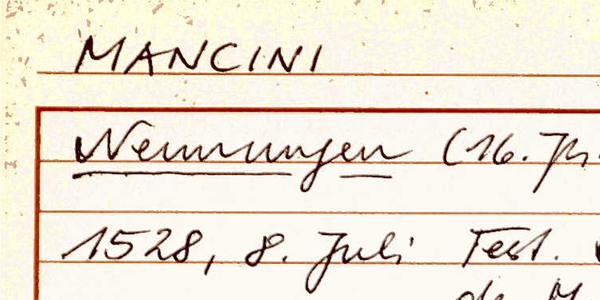 MANCINI
Nennungen (16. Jh.
1528, 8. Juli Test.
de M